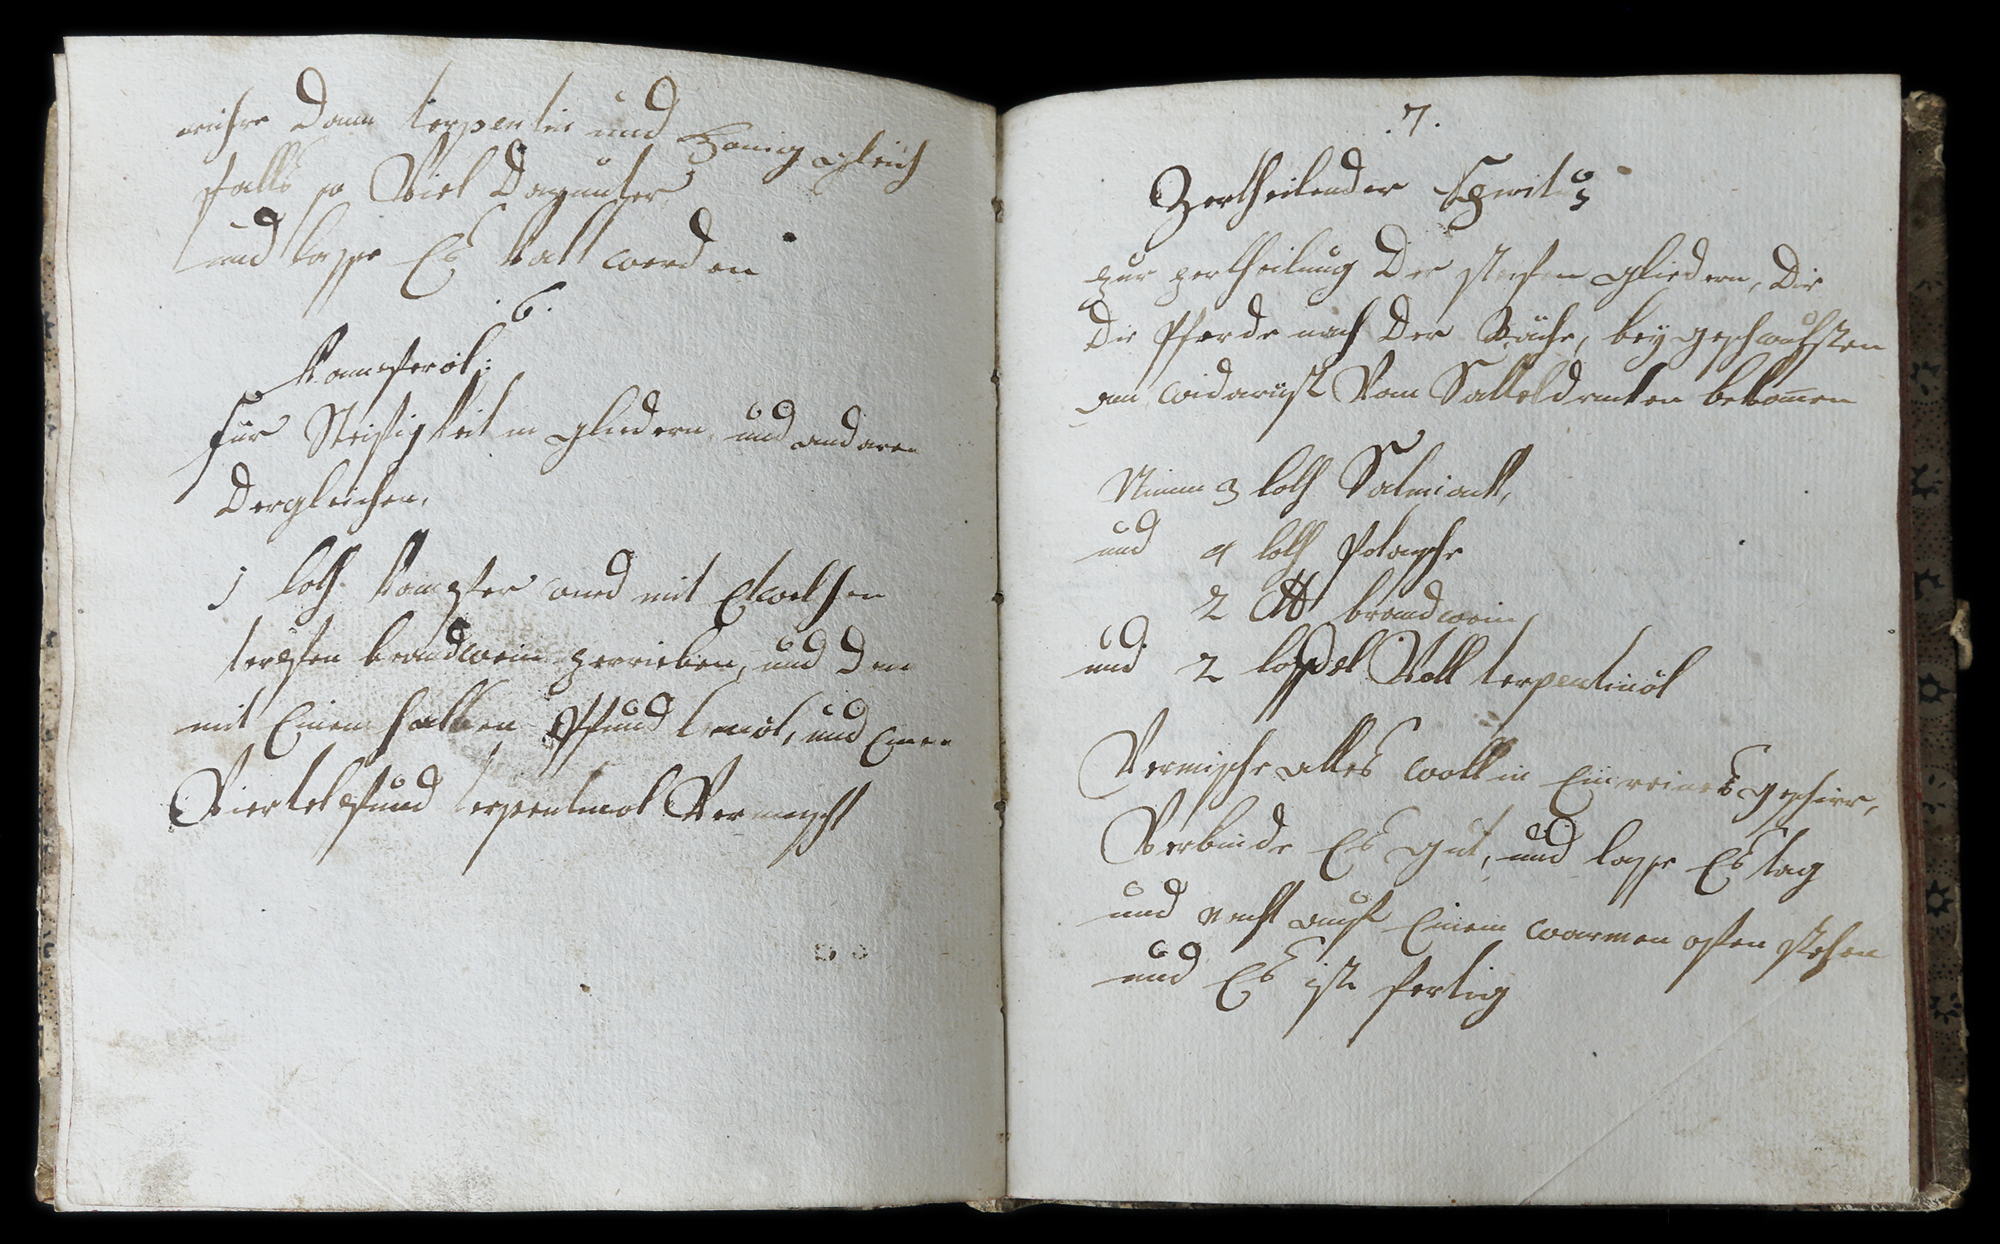 rühre Dann terpentin und Honig gleich
falls so Viel Dagunter
und lasse Es kalt werden
6.
Kampferöl:
für Steifigkeit in gliedern und andere
Dergleichen.
1 loth Kampfer wird mit Etwelchen
tropfen brandwein zerrieben, und den
mit Einem halben Pfund leinöl, und Einen
Viertelpfund terpentinöl Vermischt
.7.
Zertheilender Spiritus
zur zertheilung Der steifen gliedern, Die
Die Pferde nach Der Räche, bey geschwulsten
am widerrist Vom Satteldrucken bekom̄en
Nimm 3 loth Salmiack,
und 4 loth Potasche
2 ℔ brandwein
und 2 löffel Voll terpentinöl
Vermische alles woll in Ein reines geschirr,
Verbinde Es gut, und lasse Es tag
und nacht auf Einem warmen ofen stehen
und Es ist fertig